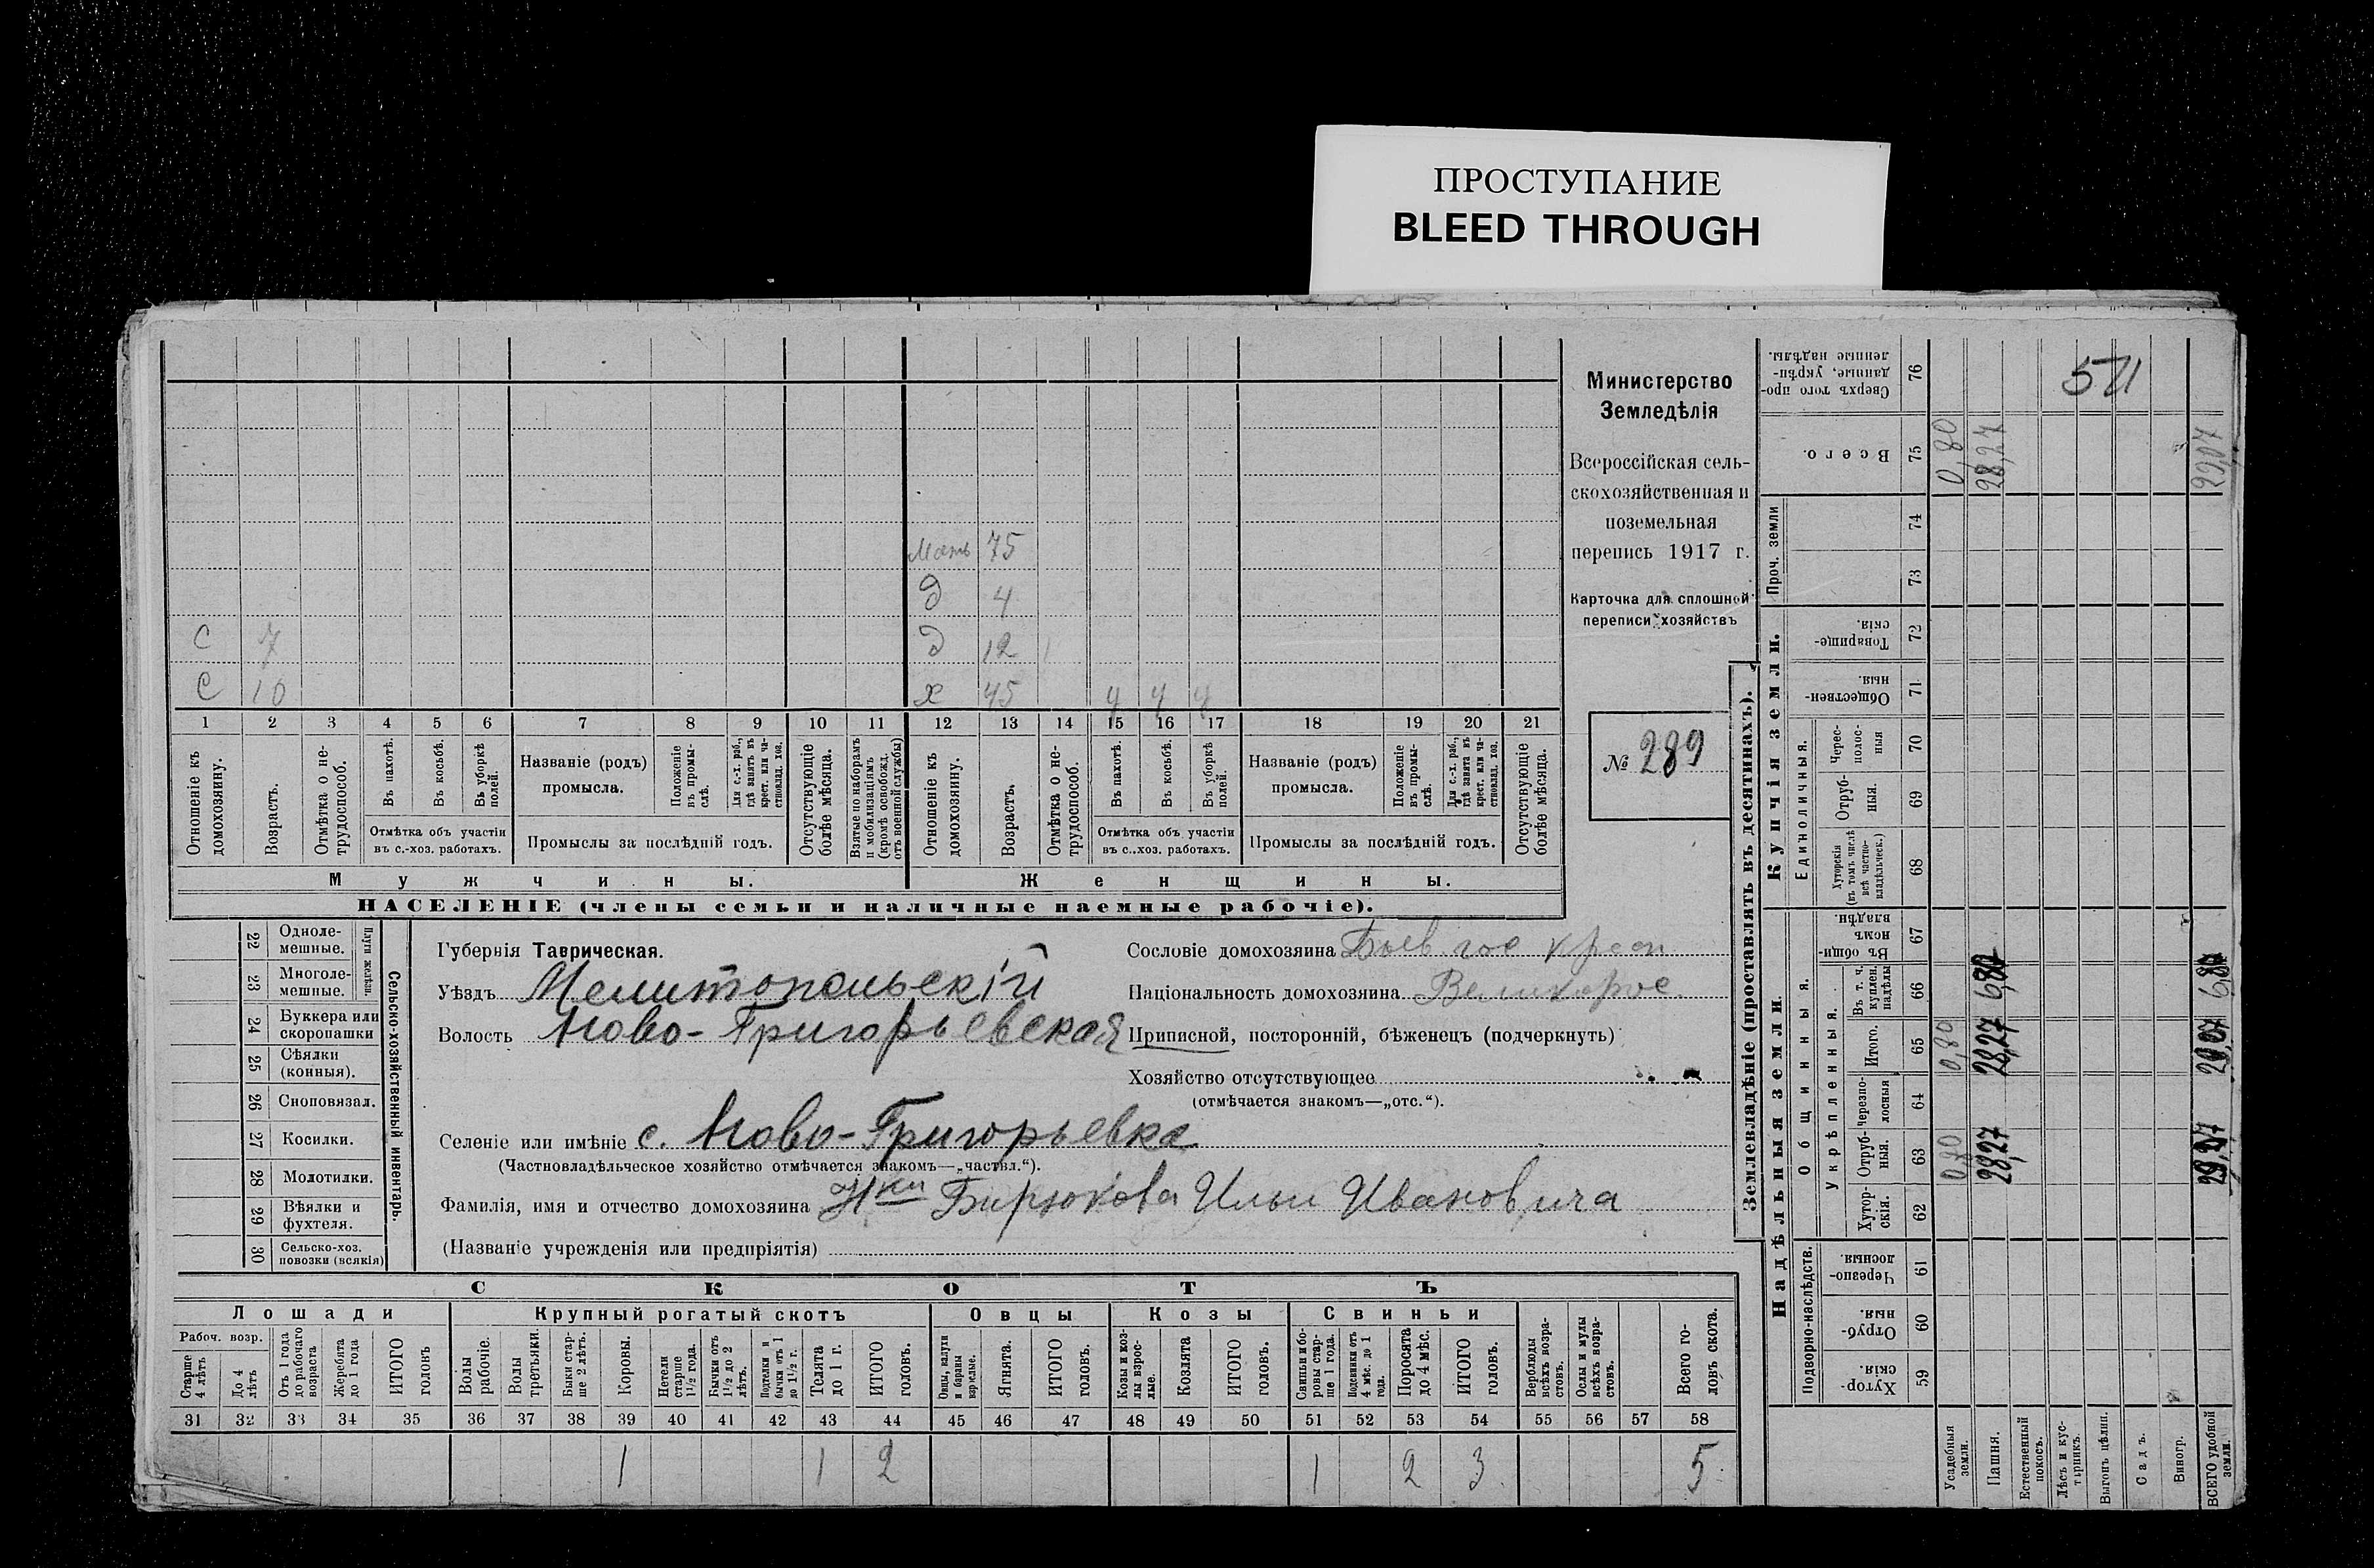 ПРОСТУПАНИЕ
BLEED THROUGH
Мать 75
Д 4
С 7 Д 12
С 10 х 45 у у у
1 2 3 4 5 6 7 8 9 10 11 12 13 14 15 16 17 18 19 20 21
Отношеніе къ домохозяину.
Возрастъ.
Отмѣтка о не-
трудоспособ.
Въ пахотѣ.
Въ косьбѣ.
Въ уборкѣ
полей.
Отмѣтка объ участіи
въ с.-хоз. работахъ.
Названіе (родъ)
промысла.
Положеніе
въ промы-
слѣ.
Для с.-х. раб.,
гдѣ занятъ въ
крест. или ча-
стновлад. хоз.
Промыслы за послѣдній годъ.
Отсутствующіе
болѣе мѣсяца.
Взятые по наборамъ
и мобилизаціямъ
(кромѣ освобожд.
отъ военной службы)
Отношеніе къ
домохозяину.
Возрастъ.
Отмѣтка о не-
трудоспособ.
Въ пахотѣ.
Въ косьбѣ.
Въ уборкѣ
полей.
Отмѣтка объ участіи
въ с..хоз. работахъ.
Названіе (родъ)
промысла.
Положеніе
въ промы-
слѣ.
Для с.-х. раб.,
гдѣ занята въ
крест. или ча-
стновлад. хоз.
Промыслы за послѣдній годъ.
Отсутствующіе
болѣе мѣсяца.
Мужчины.
Женщины.
НАСЕЛЕНІЕ (члены семьи и наличные наемные рабочіе).
Министерство
Земледѣлія
Всероссійская сель-
скохозяйственная и
поземельная
перепись 1917 г.
Карточка для сплошной
переписи хозяйствъ
№ 289
22 Одноле-
мешные.
23 Многоле-
мешные.
Плуги желѣзн.
24 Буккера или
скоропашки
25 Сѣялки
(конныя).
26 Сноповязал.
27 Косилки.
28 Молотилки.
29 Вѣялки и
фухтеля.
30 Сельско-хоз.
повозки (всякія)
Сельско-хозяйственный инвентарь.
Губернія Таврическая.
Уѣздъ Мелитопольскій
Волость Ново-Григорьевская
Селеніе или имѣніе с. Ново-Григорьевка
(Частновладѣльческое хозяйство отмѣчается знакомъ—„частвл.“).
Фамилія, имя и отчество домохозяина Н-ки Бирюкова Ильи Ивановича
(Названіе учрежденія или предпріятія)
Сословіе домохозяина Бывш гос крест
Національность домохозяина Великорос.
Приписной, посторонній, бѣженецъ (подчеркнуть)
Хозяйство отсутствующее
(отмѣчается знакомъ—„отс.“).
СКОТЪ
Лошади
Рабоч. возр.
Старше
4 лѣтъ
До 4
лѣтъ
Отъ 1 года
до рабочаго
возраста
Жеребята
до 1 года
ИТОГО
головъ
Крупный рогатый скотъ
Волы
рабочіе.
Волы
третьяки.
Быки стар-
ше 2 лѣтъ.
Коровы.
Нетели
старше
1½ года.
Бычки отъ
1½ до 2
лѣтъ.
Подтелки и
бычки отъ 1
до 1½ г.
Телята
до 1 г.
ИТОГО
головъ.
Овцы
Овцы, валухи
и бараны
взрослые.
Ягнята.
ИТОГО
головъ.
Козы
Козы и коз-
лы взрос-
лые.
Козлята
ИТОГО
головъ.
Свиньи
Свиньи и бо-
ровы стар-
ше 1 года.
Подсвинки отъ
4 мѣс. до 1
года.
Поросята
до 4 мѣс.
ИТОГО
головъ.
Верблюды
всѣхъ возра-
стовъ.
Ослы и мулы
всѣхъ возра-
стовъ.
Всего го-
ловъ скота.
31 32 33 34 35 36 37 38 39 40 41 42 43 44 45 46 47 48 49 50 51 52 53 54 55 56 57 58
1 1 2 1 2 3 5
Землевладѣніе (проставлять въ десятинахъ).
Купчія земли.
Надѣльныя земли.
Сверхъ того про-
данные, укрѣп-
ленные надѣлы.
76
Всего. 75 0,80 28,27 29,07
Проч. земли
74
73
Товарище-
скія. 72
Обществен-
ныя. 71
Единоличныя.
Черес-
полос-
ныя 70
Отруб-
ныя. 69
Хуторскія
(въ томъ числѣ
всѣ частно-
владѣльческ.) 68
Общинныя.
Въ общи-
номъ
владѣн. 67
Укрѣпленныя.
Въ т. ч.
куплен.
надѣлы 66 6,80 6,80
Итого. 65 0,80 28,27 29,07
Черезпо-
лосныя 64
Отруб-
ныя. 63 0,80 28,27 29,07
Хутор-
скія. 62
Подворно-наслѣдств.
Черезпо-
лосныя. 61
Отруб-
ныя. 60
Хутор-
скія. 59
Усадебныя
земли.
Пашня.
Естественный
покосъ.
Лѣсъ и кус-
тарникъ.
Выгонъ цѣлин.
Садъ.
Виногр.
ВСЕГО удобной
земли.